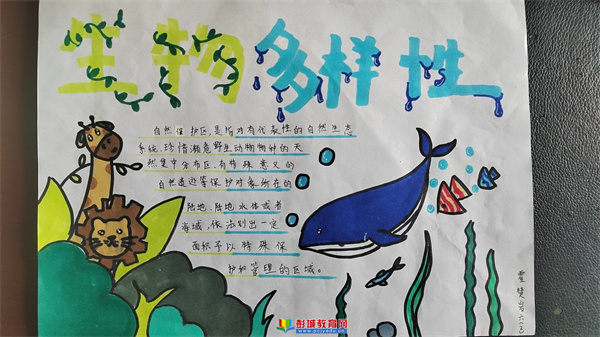 生物多样性
自然保护区,是指对有代表性的自然生态
系统,珍惜濒危野生动物物种的天
然集中分布区,有特殊意义的
自然遗迹等保护对象所在的
陆地、陆地水体或者
海域,依法划出一定
面积予以特殊保
护和管理的区域。
六(3)
彭城教育网